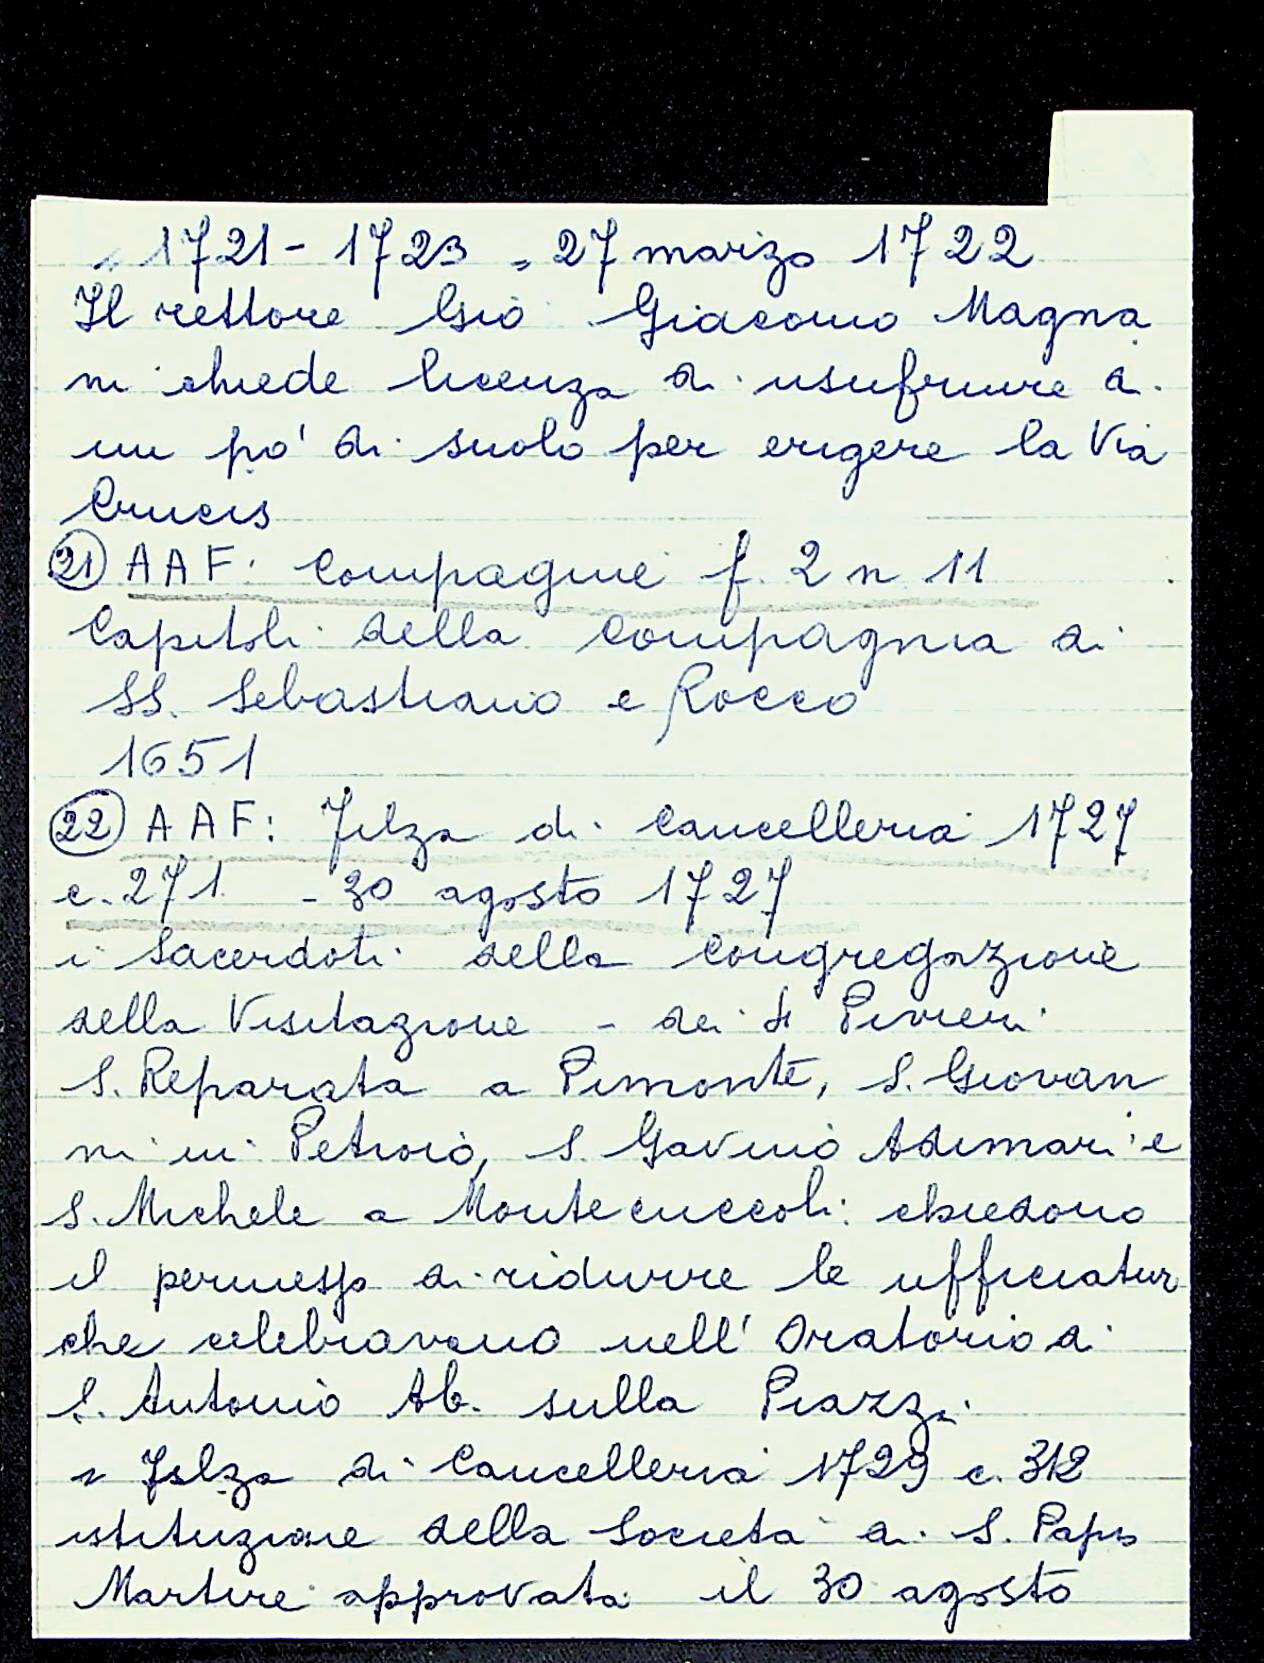 " 1721 - 1723 - 27 marzo 1722
Il rettore Gio Giacomo Magna
ni chiede licenza di usufruire di
un po' di suolo per erigere la Via
Crucis
21) AAF: Compagnie f. 2 n 11
Capitoli della Compagnia di
SS. Sebastiano e Rocco
1651
22) AAF: Filza di Cancelleria 1727
c. 271 - 30 agosto 1727
i Sacerdoti della Congregazione
della Visitazione - dei 4 Pivieri
S. Reparata a Pimonte, S. Giovan
ni in Petroio, S. Gavino Adimari e
S. Michele a Montecuccoli: chiedono
il permesso di ridurre le ufficiatur
che celebravano nell' Oratorio di
S. Antonio Ab. sulla Piazza.
" Filza di Cancelleria 1729 c. 312
istituzione della Società di S. Papio
Martire approvata il 30 agosto